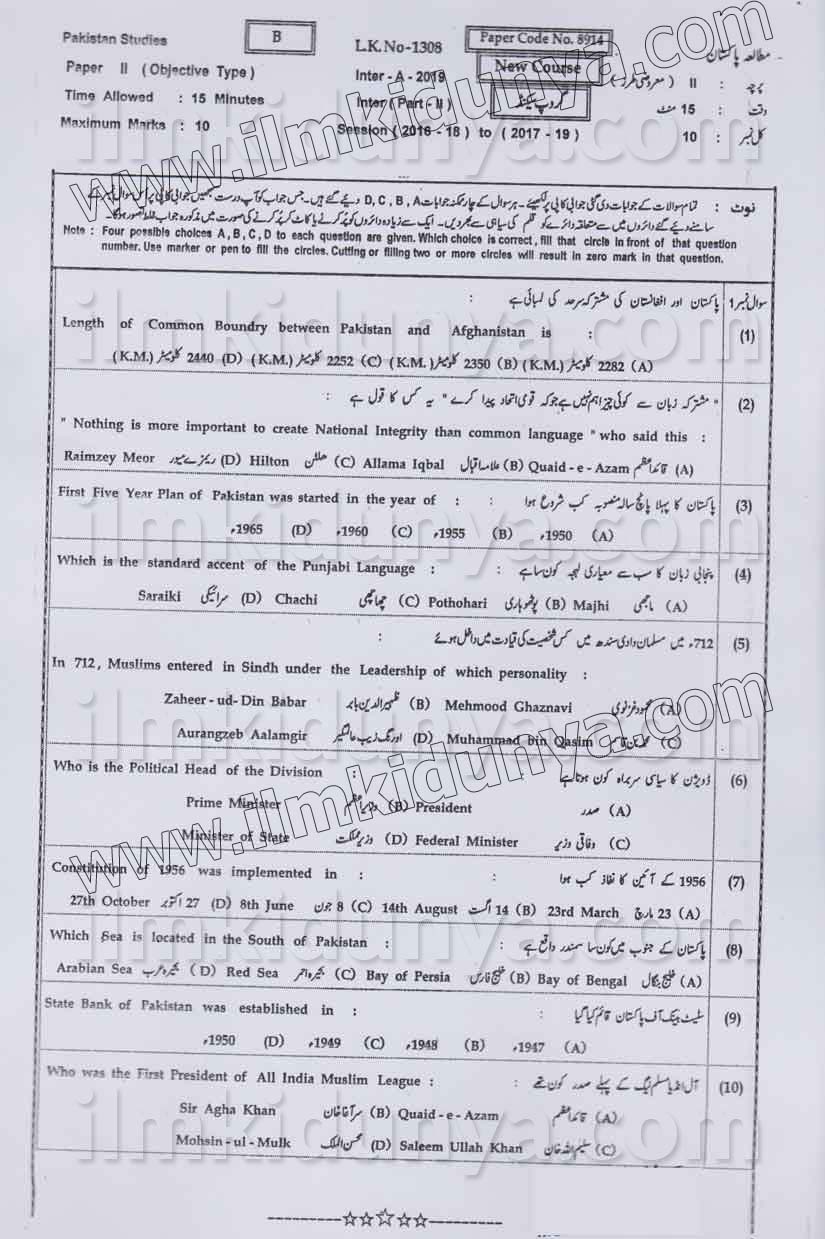 Pakistan Studies
B
L.K.No-1308
Paper Code No. 8914
مطالعہ پاکستان
Paper II (Objective Type)
Inter-A-2019
New Course
پرچہ : II (معروضی طرز)
Time Allowed : 15 Minutes
Inter (Part-II)
گروپ سیکنڈ
وقت : 15 منٹ
Maximum Marks : 10
Session (2016-18) to (2017-19)
کل نمبر : 10
نوٹ : تمام سوالات کے جوابات دی گئی جوابی کاپی پر لکھیئے۔ ہر سوال کے چار ممکنہ جوابات D, C, B, A دیئے گئے ہیں۔ جس جواب کو آپ درست سمجھیں جوابی کاپی پر اس سوال نمبر کے
سامنے دیئے گئے دائروں میں سے متعلقہ دائرے کو قلم کی سیاہی سے بھر دیں۔ ایک سے زیادہ دائروں کو پُر کرنے یا کاٹ کر پُر کرنے کی صورت میں مذکورہ جواب غلط تصور ہوگا۔
Note : Four possible choices A, B, C, D to each question are given. Which choice is correct, fill that circle in front of that question
number. Use marker or pen to fill the circles. Cutting or filling two or more circles will result in zero mark in that question.
سوال نمبر 1 پاکستان اور افغانستان کی مشترکہ سرحد کی لمبائی ہے :
Length of Common Boundry between Pakistan and Afghanistan is : (1)
(A) 2282 کلومیٹر (K.M.) (B) 2350 کلومیٹر (K.M.) (C) 2252 کلومیٹر (K.M.) (D) 2440 کلومیٹر (K.M.)
(2) " مشترکہ زبان سے کوئی چیز اہم نہیں ہے جو کہ قومی اتحاد پیدا کرے " یہ کس کا قول ہے :
" Nothing is more important to create National Integrity than common language " who said this :
(A) قائداعظم Quaid-e-Azam (B) علامہ اقبال Allama Iqbal (C) ہلٹن Hilton (D) ریمزے میور Raimzey Meor
First Five Year Plan of Pakistan was started in the year of : : پاکستان کا پہلا پانچ سالہ منصوبہ کب شروع ہوا (3)
(A) 1950ء (B) 1955ء (C) 1960ء (D) 1965ء
Which is the standard accent of the Punjabi Language : پنجابی زبان کا سب سے معیاری لہجہ کون سا ہے : (4)
(A) ماجھی Majhi (B) پوٹھوہاری Pothohari (C) چھاچھی Chachi (D) سرائیکی Saraiki
(5) 712ء میں مسلمان وادی سندھ میں کس شخصیت کی قیادت میں داخل ہوئے :
In 712, Muslims entered in Sindh under the Leadership of which personality :
(A) محمود غزنوی Mehmood Ghaznavi (B) ظہیر الدین بابر Zaheer-ud-Din Babar
(C) محمد بن قاسم Muhammad bin Qasim (D) اورنگ زیب عالمگیر Aurangzeb Aalamgir
Who is the Political Head of the Division : ڈویژن کا سیاسی سربراہ کون ہوتا ہے (6)
(A) صدر President (B) وزیراعظم Prime Minister
(C) وفاقی وزیر Federal Minister (D) وزیر مملکت Minister of State
Constitution of 1956 was implemented in : : 1956 کے آئین کا نفاذ کب ہوا (7)
(A) 23 مارچ 23rd March (B) 14 اگست 14th August (C) 8 جون 8th June (D) 27 اکتوبر 27th October
Which Sea is located in the South of Pakistan : پاکستان کے جنوب میں کون سا سمندر واقع ہے : (8)
(A) خلیج بنگال Bay of Bengal (B) خلیج فارس Bay of Persia (C) بحیرہ احمر Red Sea (D) بحیرہ عرب Arabian Sea
State Bank of Pakistan was established in : سٹیٹ بینک آف پاکستان قائم کیا گیا : (9)
(A) 1947ء (B) 1948ء (C) 1949ء (D) 1950ء
Who was the First President of All India Muslim League : آل انڈیا مسلم لیگ کے پہلے صدر کون تھے : (10)
(A) قائداعظم Quaid-e-Azam (B) سر آغا خان Sir Agha Khan
(C) سلیم اللہ خان Saleem Ullah Khan (D) محسن الملک Mohsin-ul-Mulk
www.ilmkidunya.com
www.ilmkidunya.com
ilmkidunya.com
ilmkidunya.com
ilmkidunya.com
ilmkidunya.com
ilmkidunya.com
ilmkidunya.com